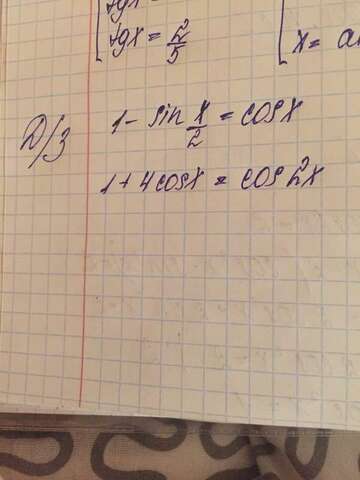 tgx =
tgx = 2/5
x =
Д/З
1 - sin x/2 = cosx
1 + 4cosx = cos2x